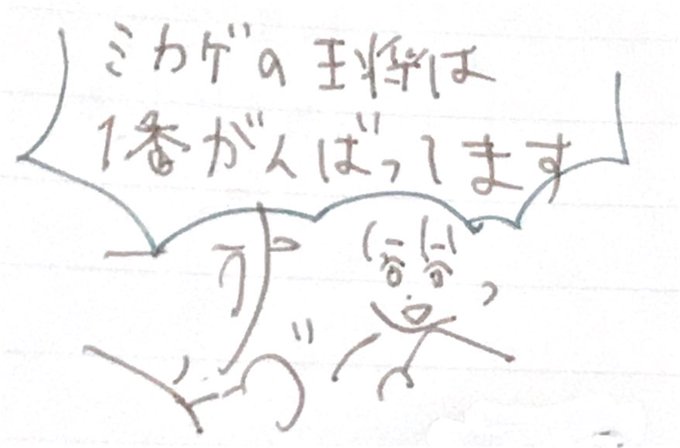 ミカゲの王将は
1番がんばってます